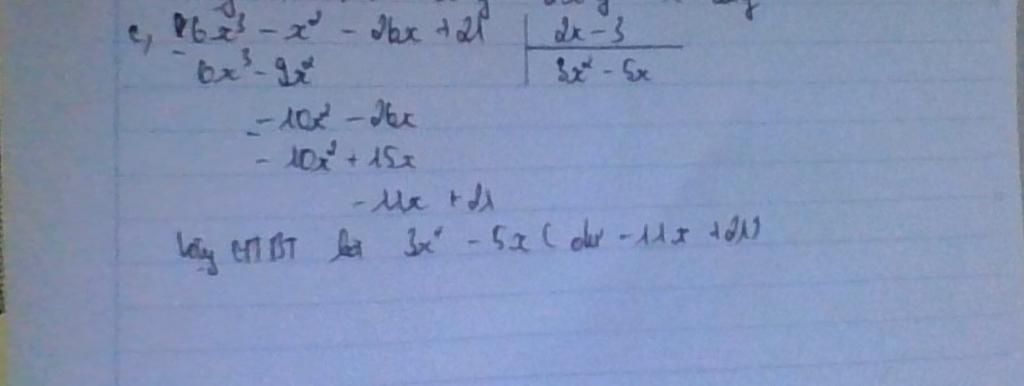 e, 6x³ - x² - 26x + 21 | 2x - 3
6x³ - 9x² | 3x² - 5x
- 10x² - 26x
- 10x² + 15x
- 11x + 21
Vậy 3x² - 5x ( dư - 11x + 21)